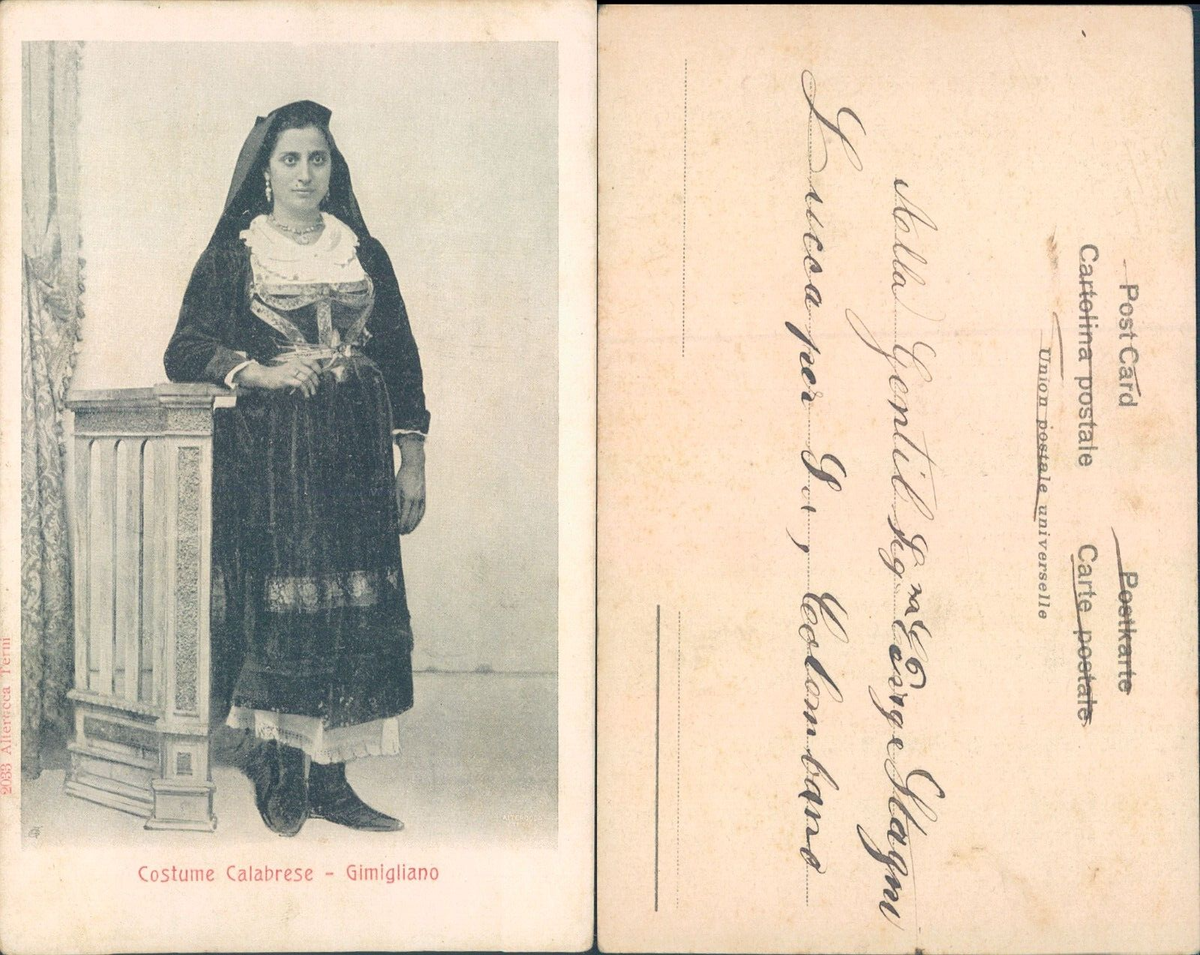 2033 Alterocca Terni
Costume Calabrese - Gimigliano
Post Card Postkarte
Cartolina postale Carte postale
Union postale universelle
Alla Gentil Sig.na
Lucca per S. Colombano